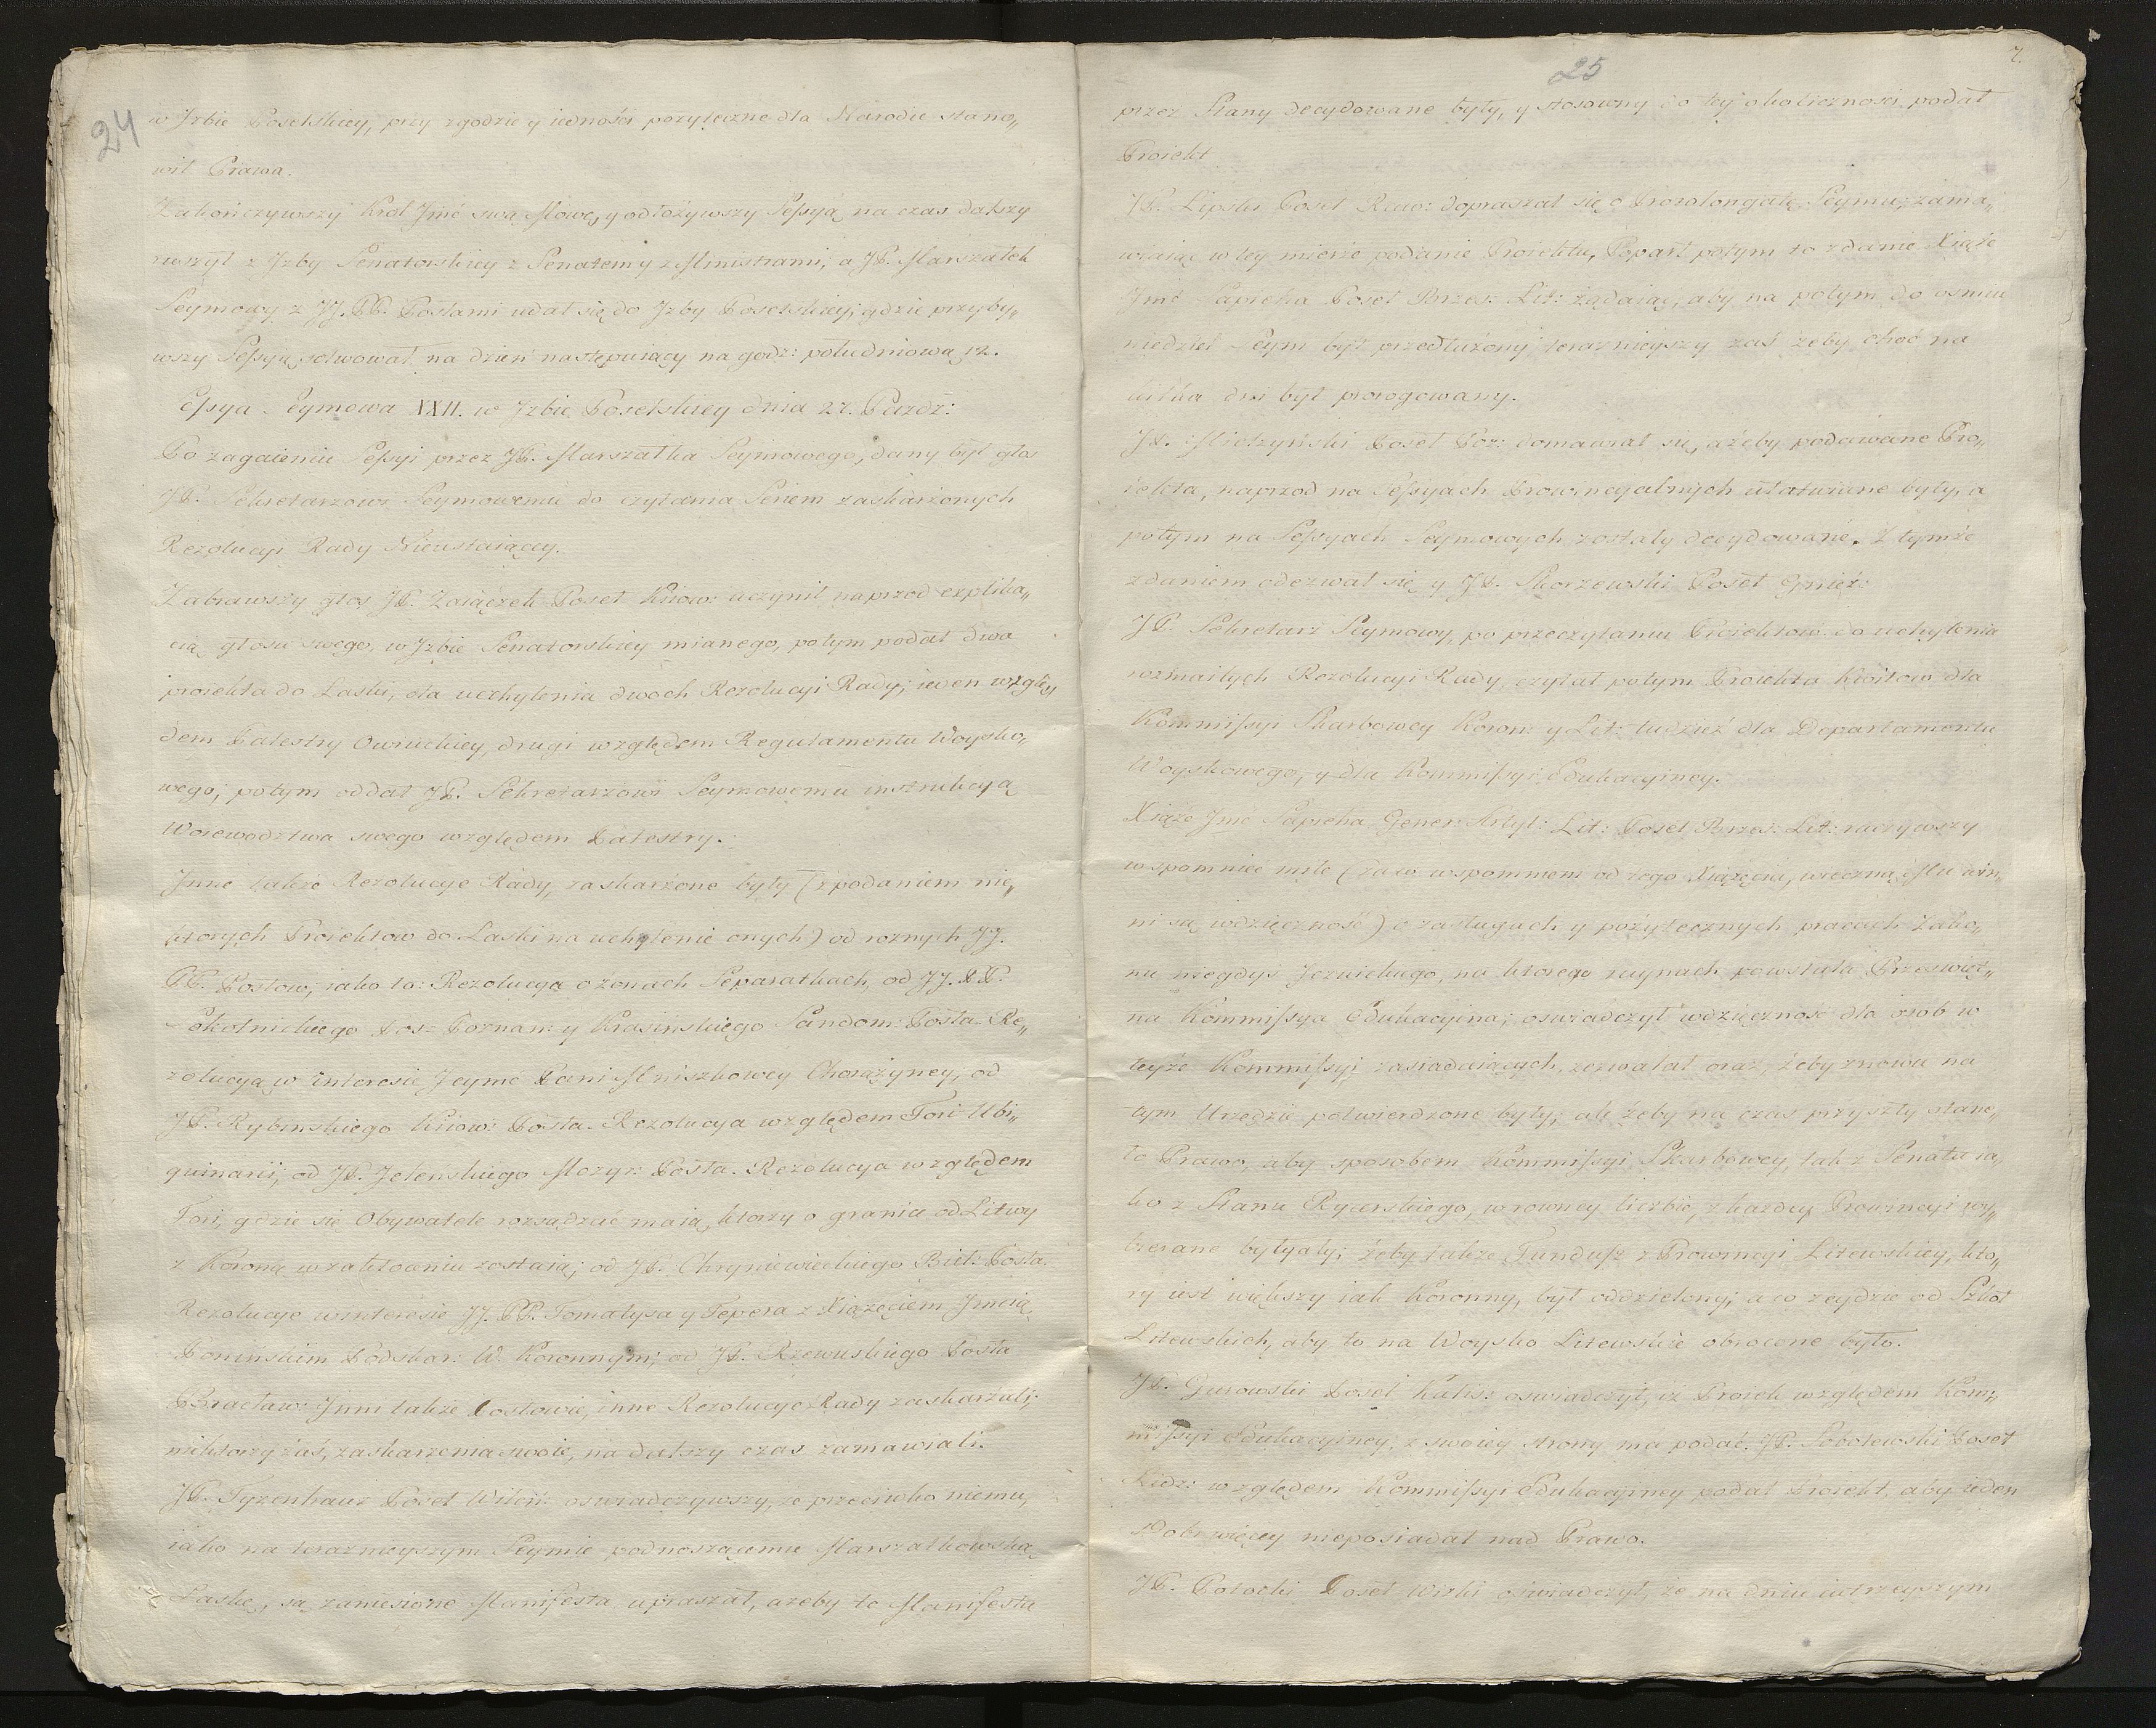 24
w Jzbie Poselskiey, przy zgodzie y iedności pozyteczne dla Narodu stano„
wil Prawa.
Zakończywszy Krol Jmć swą Mowę, y odłożywszy Sessyą na czas dalszy
ruszył z Jzby Senatorskiey z Senatem y z Ministrami, a JP. Marszałek
Seymowy z JJ. PP. Posłami udał się do Jzby Poselskiey; gdzie przyby„
wszy Sessyą solwował na dzień następuiący na godz: południową 12.
Sessya Seymowa XXII. w Jzbie Poselskiey dnia 27. Paźdz:
Po zagaieniu Sessyi przez JP. Marszałka Seymowego, dany był głos
JP. Sekretarzowi Seymowemu do czytania Seriem zaskarżonych
Rezolucyi Rady Nieustaiącey.
Zabrawszy głos JP. Zaiączek Poseł Kiiow: uczynił naprzod explika„
cią głosu swego, w Jzbie Senatorskiey mianego, potym podał dwa
proiekta do Laski, dla uchylenia dwoch Rezolucyi Rady; ieden wzglę„
dem Palestry Owruckiey, drugi względem Regulamentu Woysko„
wego; potym oddał JP. Sekretarzowi Seymowemu instrukcyą
Woiewodztwa swego względem Palestry.
Jnne także Rezolucye Rady, zaskarżone były (z podaniem nie„
ktorych Proiektow do Laski na uchylenie onych) od roznych JJ.
PP. Posłow; iako to: Rezolucya o żonach Separatkach, od JJ. PP.
Sokolnickiego Pos: Poznan: y Krasinskiego Sandom: Posła. Re„
zolucya w interesie Jeymć Pani Mniszkowey Chorążyney, od
JP. Rybinskiego Kiiow: Posła. Rezolucya względem Fori Ubi„
quinarii; od JP. Jelenskiego Mozyr: Posła. Rezolucya względem
Fori, gdzie się Obywatele rozsądzać maią, ktorzy o granice od Litwy
z Koroną w zakłoceniu zostaią; od JP. Chryniewieckiego Biel: Posła.
Rezolucye w interesie JJ. PP. Tomatysa y Tepera z Xiążęciem Jmcią
Poninskim Podskar: W. Koronnym; od JP. Rzewuskiego Posła
Bracław: Jnni także Posłowie, inne Rezolucye Rady zaskarżali;
niktorzy zaś, zaskarzenia swoie, na dalszy czas zamawiali.
JP. Tyzenhauz Poseł Wilen: oswiadczywszy, ze przeciwko niemu,
iako na teraznieyszym Seymie podnoszącemu Marszałkowską
Laskę, są zaniesione Manifesta upraszał, azeby te Manifesta
25
7.
przez Stany decydowane były, y stosowny do tey okoliczności podał
Proiekt
JP. Lipski Poseł Raw: dopraszał się o Prorolongatę Seymu; zama„
wiaiąc w tey mierze podanie Proiektu, Poparł potym to zdanie Xiąże
Jmć Sapieha Poseł Brzes: Lit: żądaiąc, aby na potym do osmiu
niedziel Seym był przedłużony, teraznieyszy zaś żeby choć na
kilka dni był prorogowany.
JP. Mielzyński Poseł Poz: domawiał się, ażeby podawane Pro„
iekta, naprzod na Sessyach Prowincyalnych ułatwiane były, a
potym na Sessyach Seymowych zostały decydowane. Z tymże
zdaniem odezwał się y JP. Skorzewski Poseł Gnież:
JP. Sekretarz Seymowy, po przeczytaniu Proiektow do uchylenia
rozmaitych Rezolucyi Rady, czytał potym Proiekta Kwitow dla
Kommissyi Skarbowey Koron: y Lit: tudzież dla Departamentu
Woyskowego, y dla Kommissyi Edukacyiney.
Xiąże Jmć Sapieha Gener: Artyl: Lit: Poseł Brzes: Lit: raczywszy
wspomnieć mile (za co wspomnieni od tego Xiążęcia, wieczną Mu win„
ni są wdzięczność) o zasługach y pożytecznych pracach Zako„
nu niegdys Jezuickiego, na ktorego ruynach powstała Prześwięt„
na Kommissya Edukacyina; oswiadczył wdzięczność dla osob w
teyże Kommissyi zasiadaiących, zezwalał oraz, żeby znowu na
tym Urzędzie potwierdzone były; ale żeby na czas przyszły stane„
ło Prawo, aby sposobem Kommissyi Skarbowey, tak z Senatu ia„
ko z Stanu Rycerskiego, w rowney liczbie, z każdey Prowincyi wy„
bierane były; żeby także Fundusz z Prowincyi Litewskiey, kto„
ry iest większy iak Koronny, był oddzielony; a co zeydzie od Szkoł
Litewskich, aby to na Woysko Litewskie obrocone było.
JP. Gurowski Poseł Kalis: oswiadczył, iż Proiek względem Kom„
missyi Edukacyiney, z swoiey strony ma podać. JP. Sobolewski Poseł
Lidz: względem Kommissyi Edukacyiney podał Proiekt, aby ieden
Dobr więcey nieposiadał nad Prawo.
JP. Potocki Poseł Wizki oświadczył, że na dniu iutrzeyszym